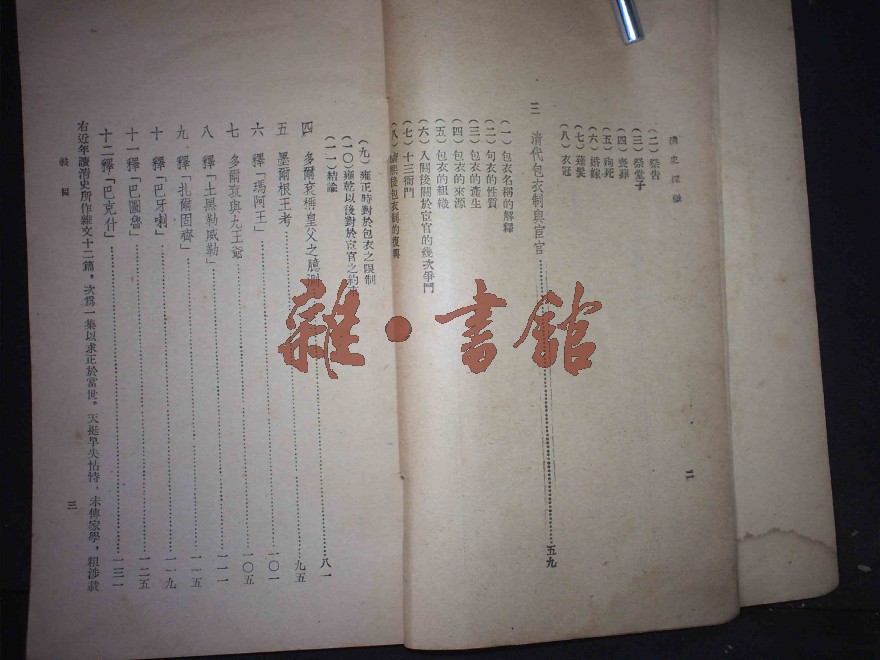 清史探微
二
(二)祭告
(三)祭堂子
(四)喪葬
(五)殉死
(六)婚嫁
(七)薙髮
(八)衣冠
三 清代包衣制與宦官 五九
(一)包衣名稱的解釋
(二)包衣的性質
(三)包衣的產生
(四)包衣的來源
(五)包衣的組織
(六)入關後關於宦官的幾次爭鬥
(七)十三衙門
(八)康熙後包衣制的復興
(九)雍正時對於包衣之限制
(一〇)雍乾以後對於宦官之約束
(一一)結論
四 多爾袞稱皇父之臆測 八一
五 墨爾根王考 九五
六 釋「瑪阿王」 一〇一
七 多爾袞與九王爺 一〇五
八 釋「土黑勒威勒」 一一一
九 釋「扎爾固齊」 一一五
十 釋「巴牙喇」 一一九
十一 釋「巴圖魯」 一二五
十二 釋「巴克什」 一三一
右近年讀清史所作雜文十二篇,次為一集以求正於當世。天挺早失怙恃,未傳家學,粗涉載
三
雜·書館